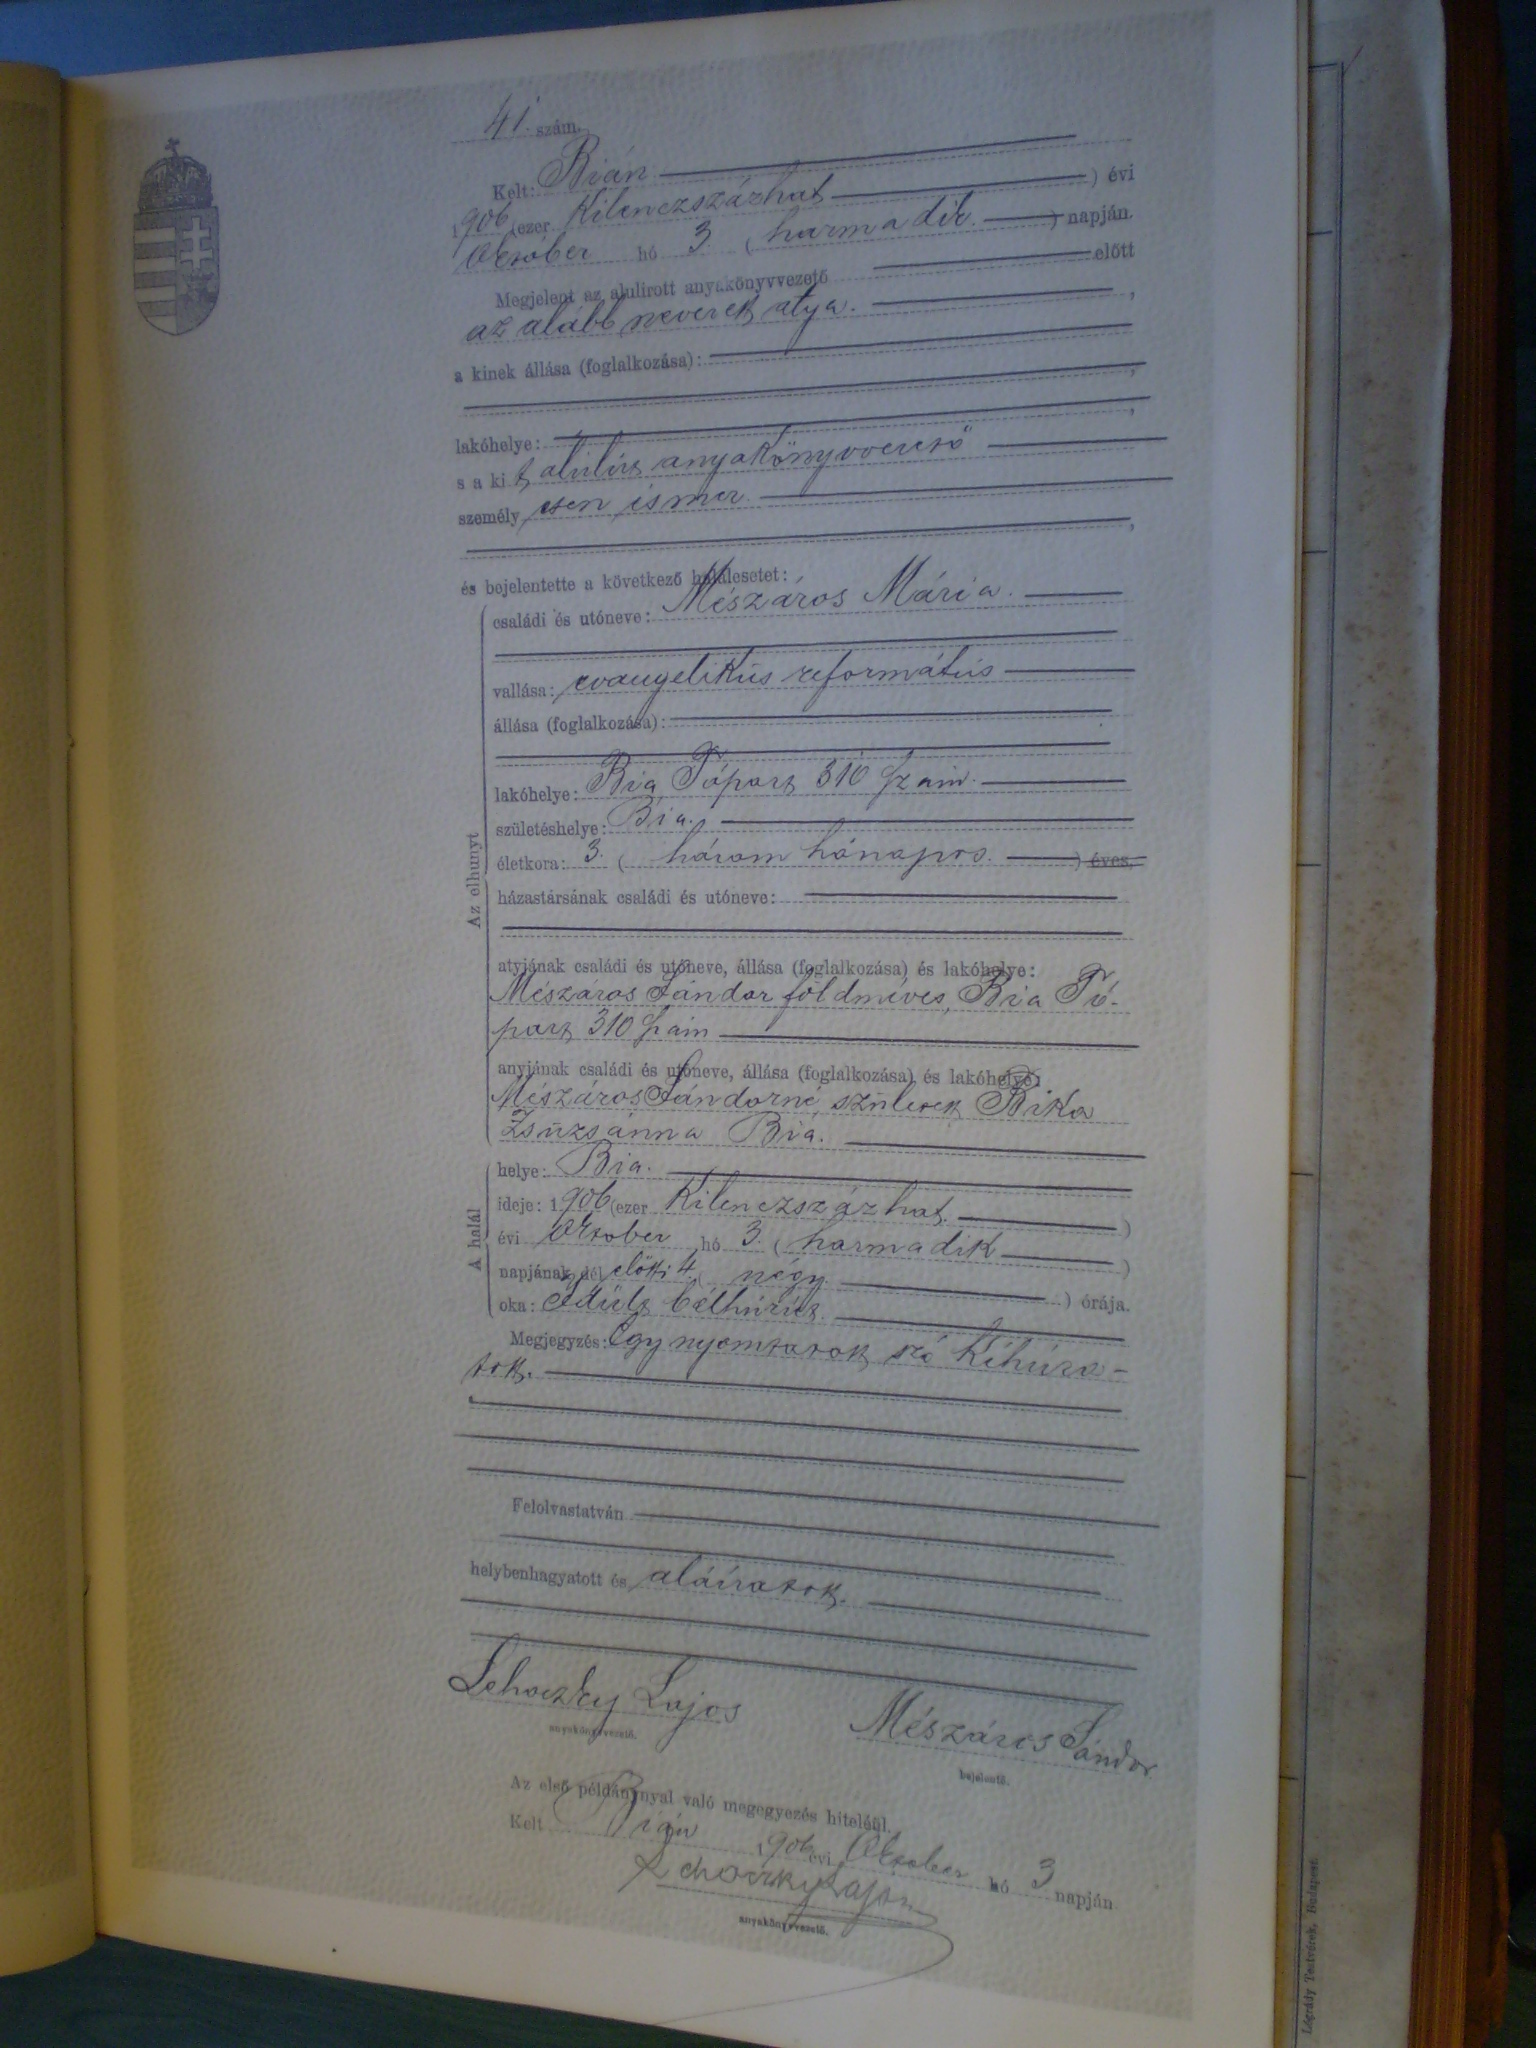 41. szám.
Kelt: Bián
1906 (ezer Kilenczszázhat ) évi
Október hó 3 ( harmadik. ) napján.
Megjelent az alulirott anyakönyvvezető előtt
az alább nevezett atya. ,
a kinek állása (foglalkozása):
,
lakóhelye: ,
s a kit alulírt anyakönyvvezető
személyesen ismer.
,
és bejelentette a következő halálesetet:
Az elhunyt
családi és utóneve: Mészáros Mária.
vallása: evangelikus református
állása (foglalkozása):
lakóhelye: Bia Tópart 310 szám.
születéshelye: Bia.
életkora: 3. ( három hónapos. ) éves,
házastársának családi és utóneve:
atyjának családi és utóneve, állása (foglalkozása) és lakóhelye:
Mészáros Sándor földmíves, Bia Tó-
part 310 szám
anyjának családi és utóneve, állása (foglalkozása) és lakóhelye:
Mészáros Sándorné, született Bika
Zsuzsánna Bia.
A halál
helye: Bia.
ideje: 1906 (ezer Kilenczszázhat. )
évi Október hó 3. ( harmadik )
napjának dél előtti 4 ( négy. ) órája.
oka: bélhurut.
Megjegyzés: Egy nyomtatott szó kihúza-
tott.
Felolvastatván
helybenhagyatott és aláíratott.
Lehoczky Lajos
anyakönyvvezető.
Mészáros Sándor
bejelentő.
Az első példánynyal való megegyezés hiteléül.
Kelt Bián 1906 évi Október hó 3 napján
Lehoczky Lajos
anyakönyvvezető.
Légrády Testvérek, Budapest.